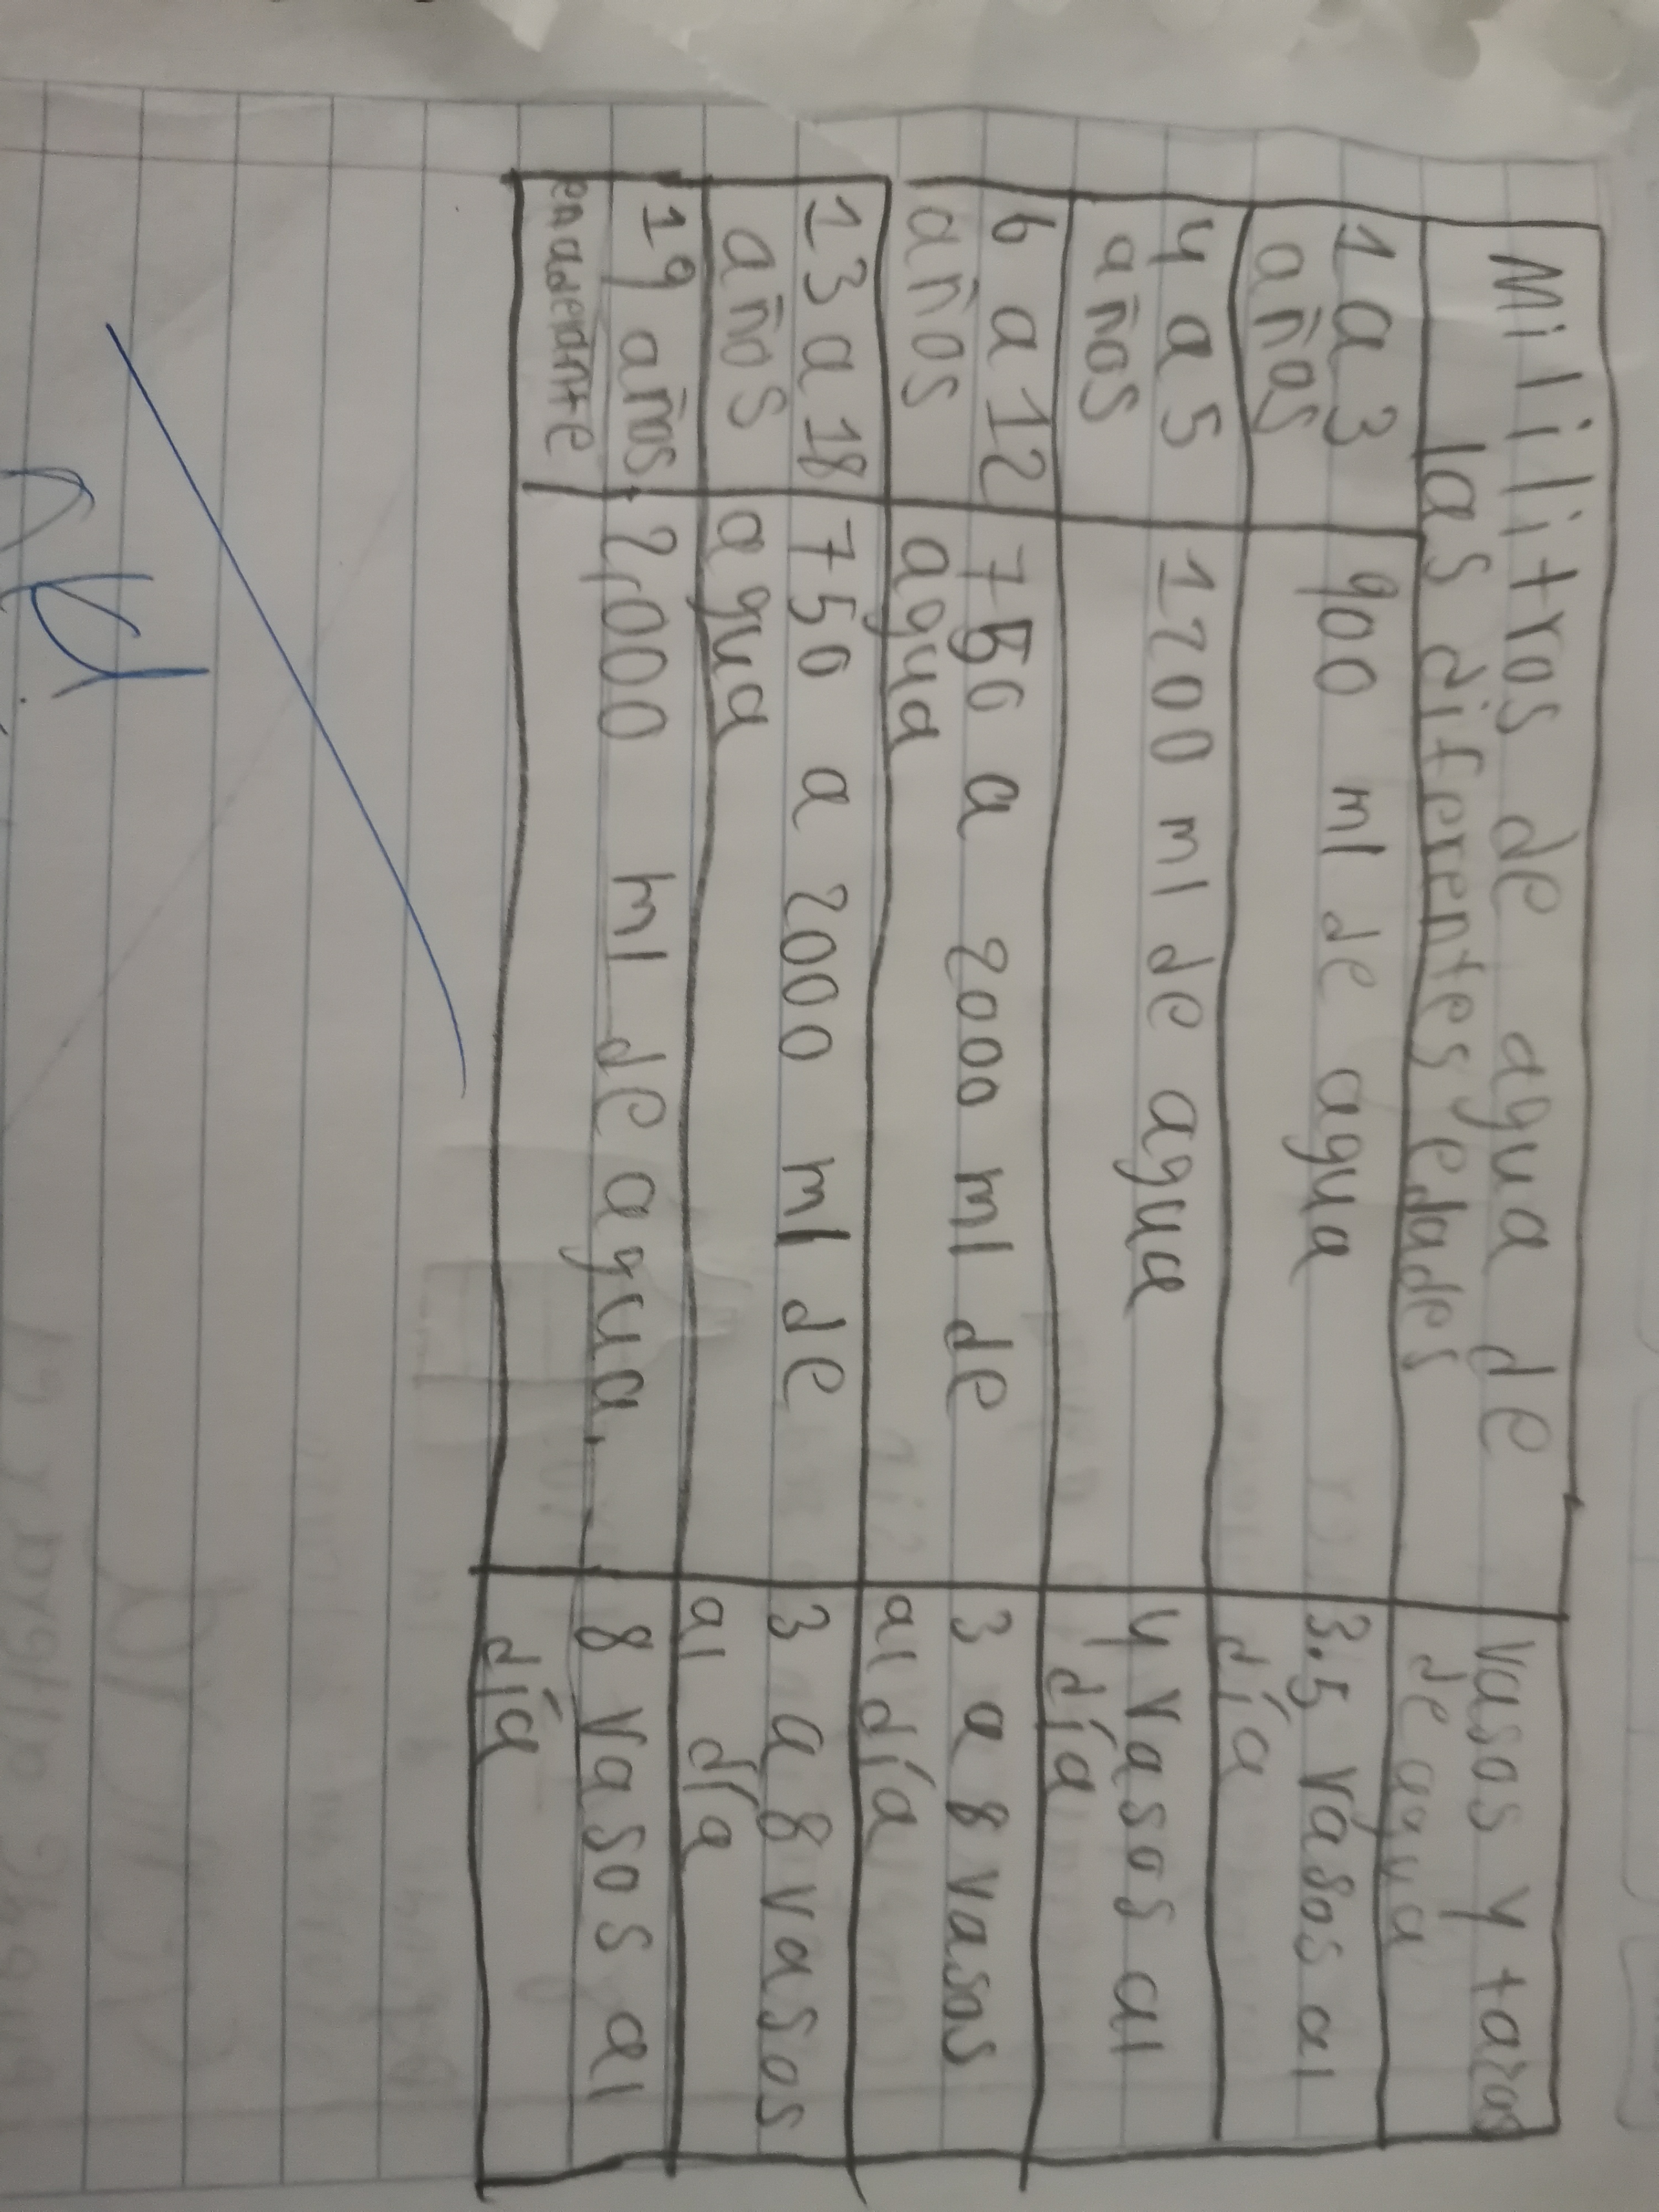 Mililitros de agua de
las diferentes edades
Vasos y tazas
de agua
1 a 3
años
900 ml de agua
3.5 vasos al
día
4 a 5
años
1200 ml de agua
4 vasos al
día
6 a 12
años
750 a 2000 ml de
agua
3 a 8 vasos
al día
13 a 18
años
750 a 2000 ml de
agua
3 a 8 vasos
al día
19 años
en adelante
2,000 ml de agua.
8 vasos al
día